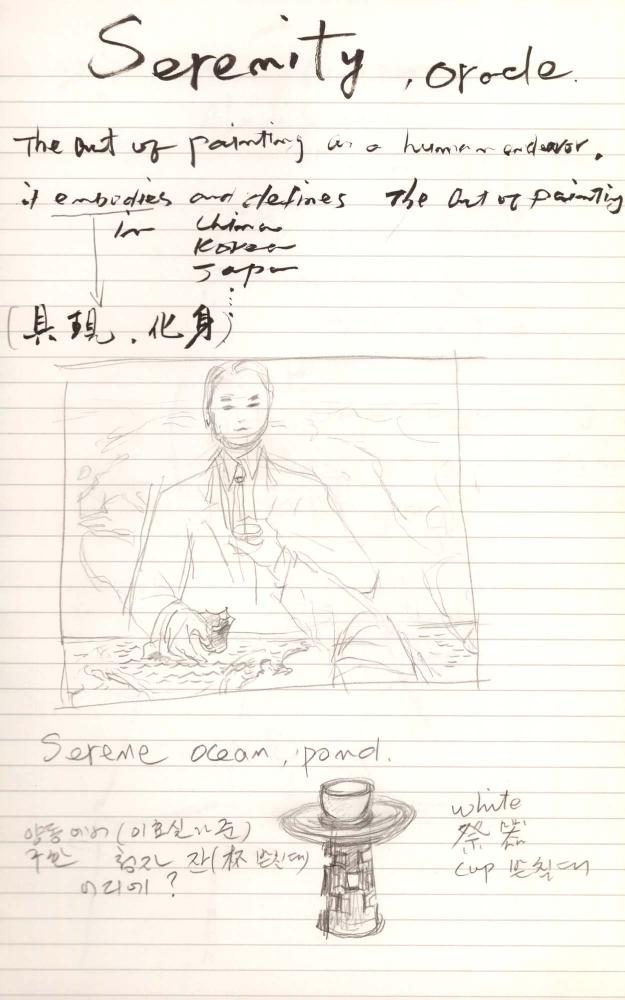 Serenity, oracle.
The art of painting as a human endeavor.
it embodies and defines The art of painting
in China
Korea
Japan
(具現. 化身)
Serene ocean, pond.
white
祭器
(杯 받침대)
cup 받침대
어디에?